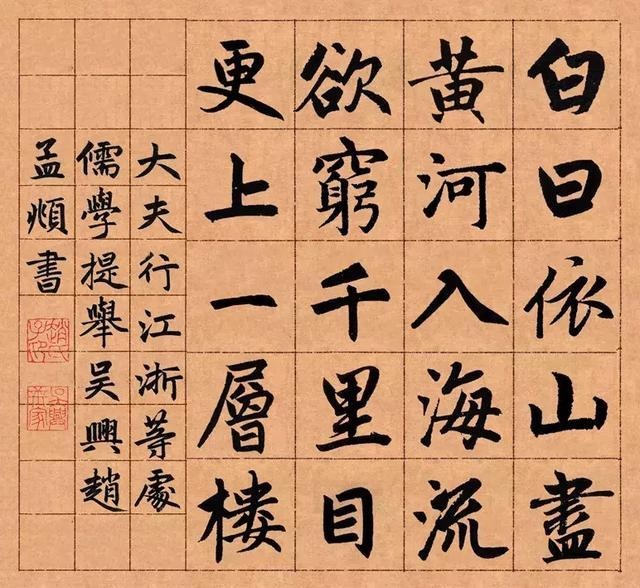 白日依山盡
黄河入海流
欲窮千里目
更上一層樓
大夫行江浙等處
儒學提舉吴興趙
孟頫書
趙氏子昂